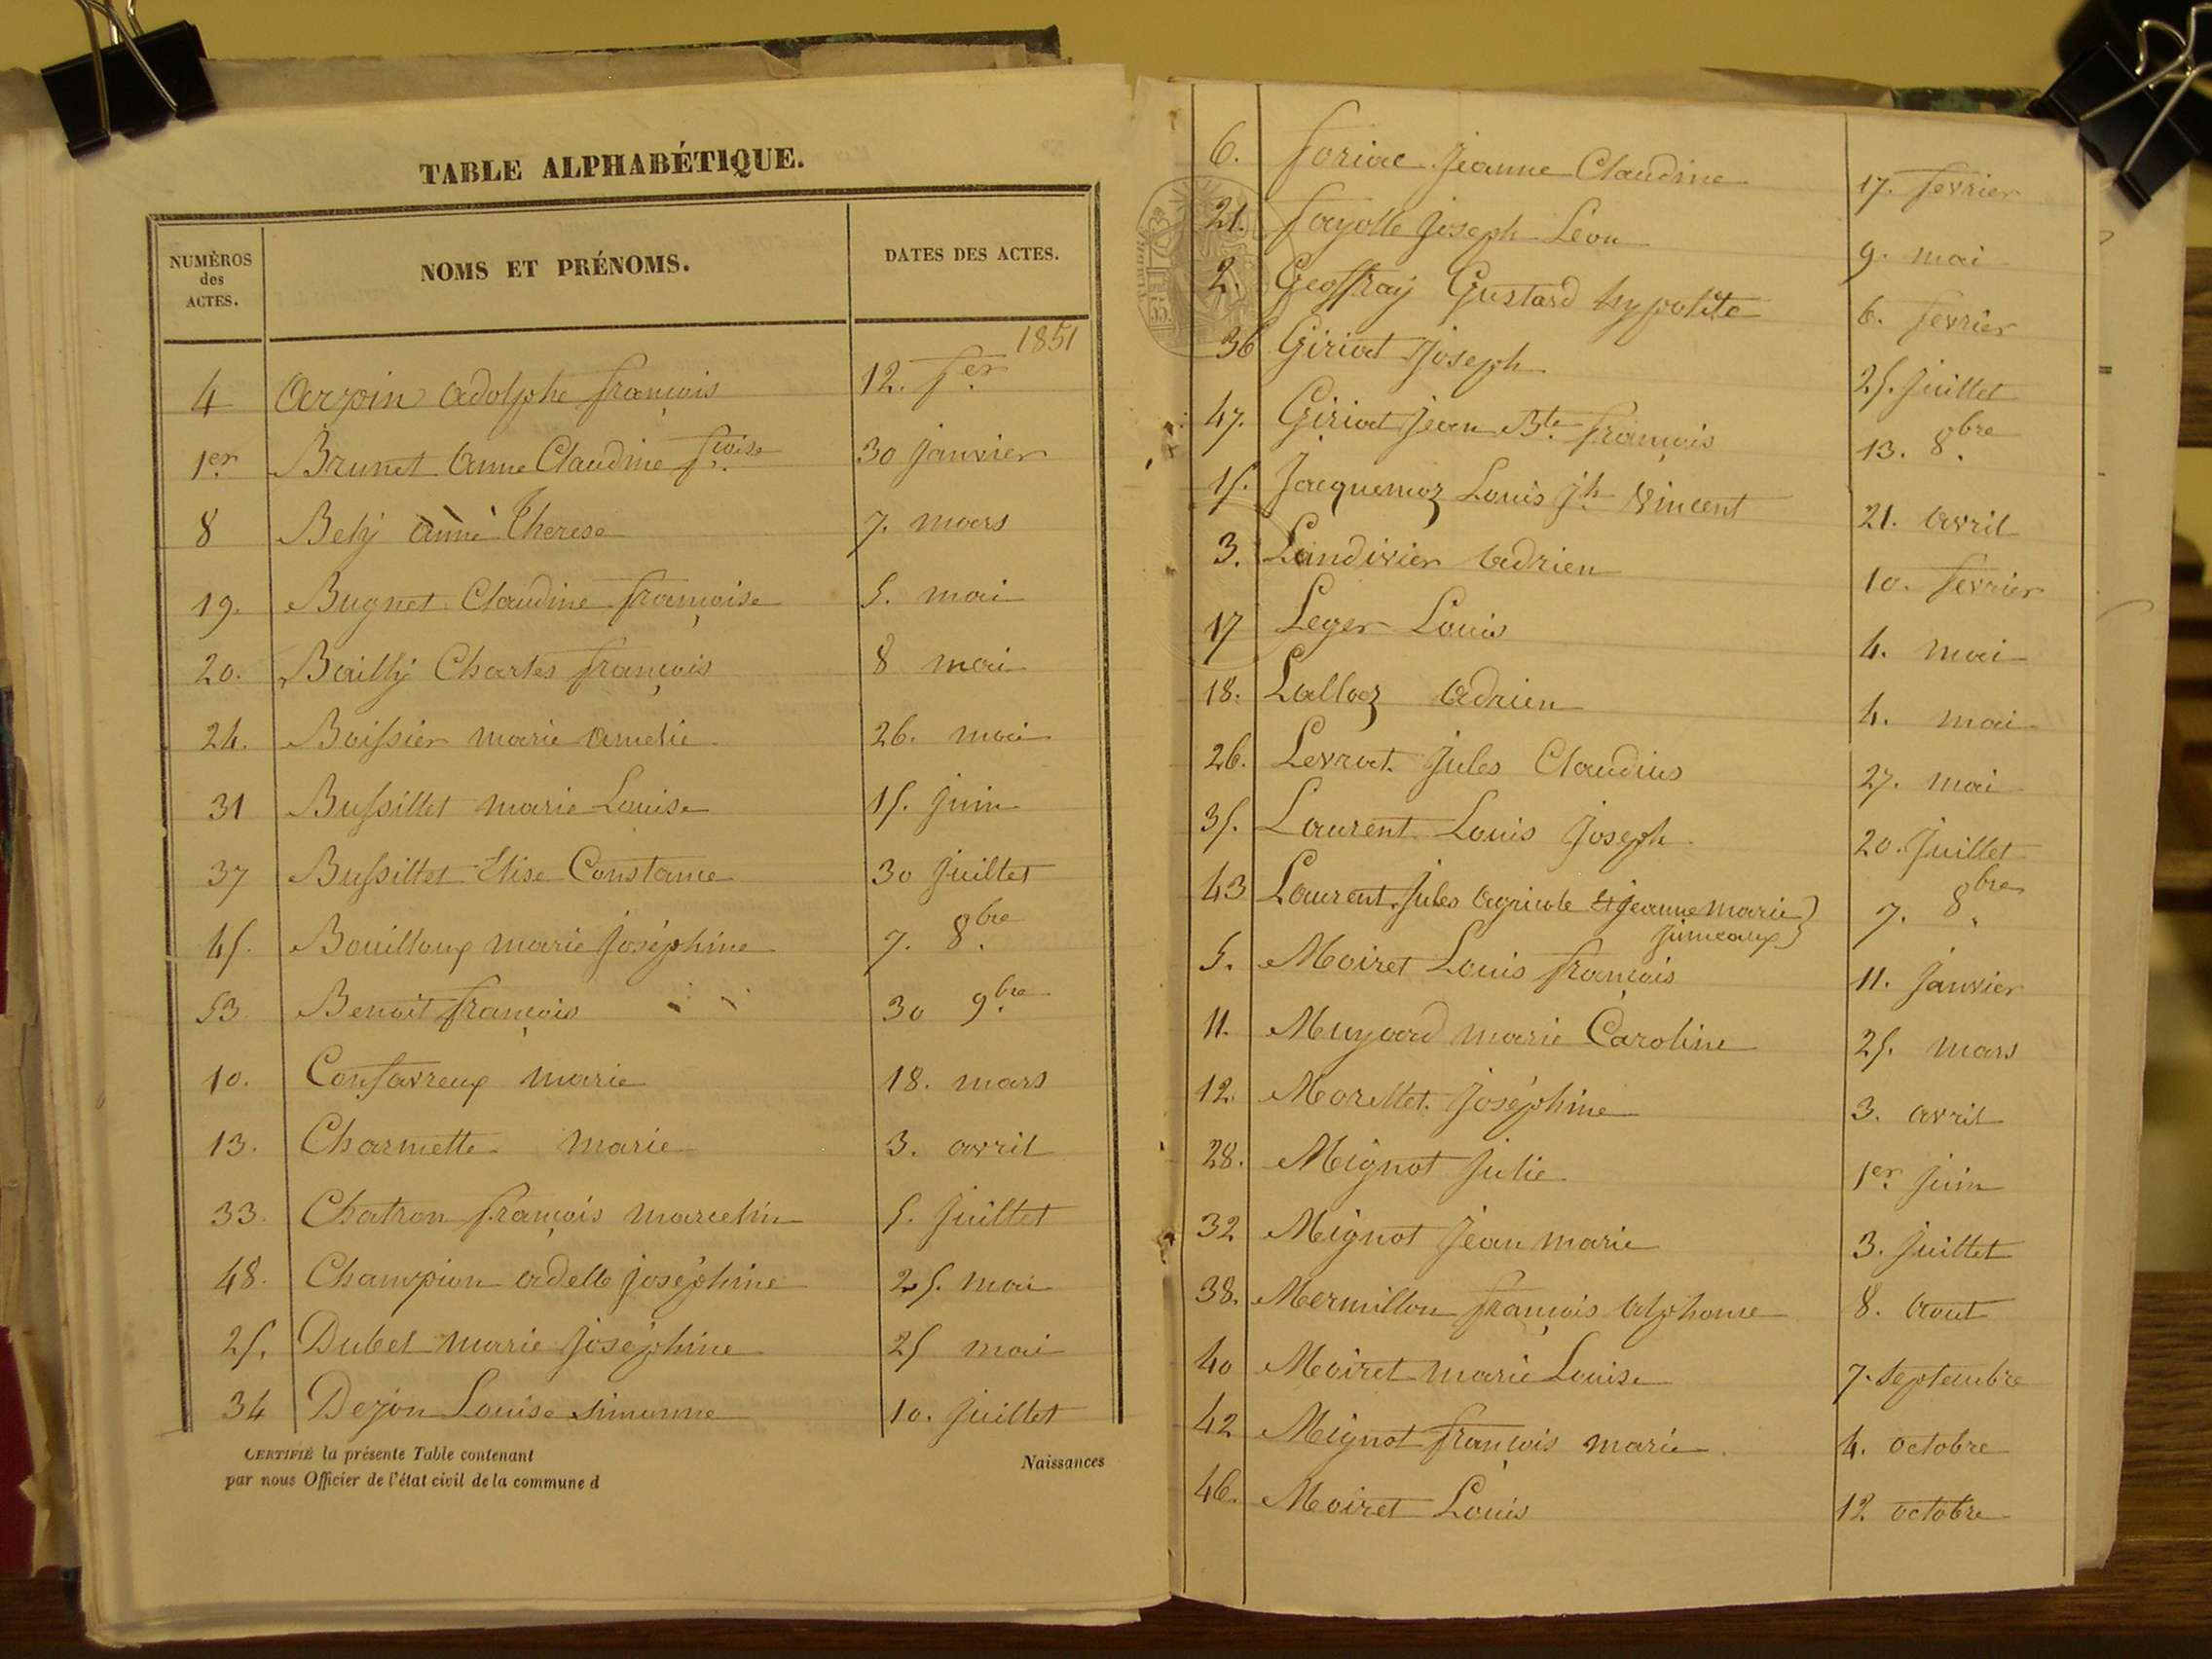 TABLE ALPHABÉTIQUE.
NUMÉROS des ACTES. NOMS ET PRÉNOMS. DATES DES ACTES.
1851
4 Arpin Adolphe françois 12. f.er
1er Brunet Anne Claudine f.coise 30 janvier
8 Bely Anne Therese 7. mars
19. Bugnet Claudine françoise 5. mai
20. Bailly Charles françois 8 mai
24. Boissier marie amelie 26. mai
31 Bussillet marie Louise 15. juin
37 Bussillet Elise Constance 30 juillet
45. Bouilloux marie joséphine 7. 8.bre
53 Benoit françois 30 9.bre
10. Confavreux marie 18. mars
13. Charmette marie 3. avril
33. Chatron françois marcelin 5. juillet
48. Champion adelle joséphine 25. mai
25. Dubet marie joséphine 25 mai
34 Dejon Louise simonne 10. juillet
CERTIFIÉ la présente Table contenant Naissances
par nous Officier de l'état civil de la commune d
6. foriat Jeanne Claudine 17. fevrier
21. fayolle Joseph Leon 9. mai
2. Geoffray Gustard hypolite 6. fevrier
36 Giriat Joseph 25. juillet
47. Giriat Jean Bte françois 13. 8.bre
15. Jacquemoz Louis jh Vincent 21. avril
3. Landivier Adrien 10. fevrier
17 Leger Louis 4. mai
18. Lalloz Adrien 4. mai
26. Levrat Jules Claudius 27. mai
35. Laurent Louis Joseph 20. juillet
43 Laurent Jules Agricole et jeanne marie 7. 8.bre
jumeaux
5. Moiret Louis françois 11. janvier
11. Muyard marie Caroline 25. mars
12. Morellet Joséphine 3. avril
28. Mignot Julie 1er juin
32 Mignot Jean marie 3. juillet
38. Mermillon françois alphonse 8. Aout
40 Moiret marie Louise 7. septembre
42 Mignot françois marie 4. octobre
46. Moiret Louis 12 octobre